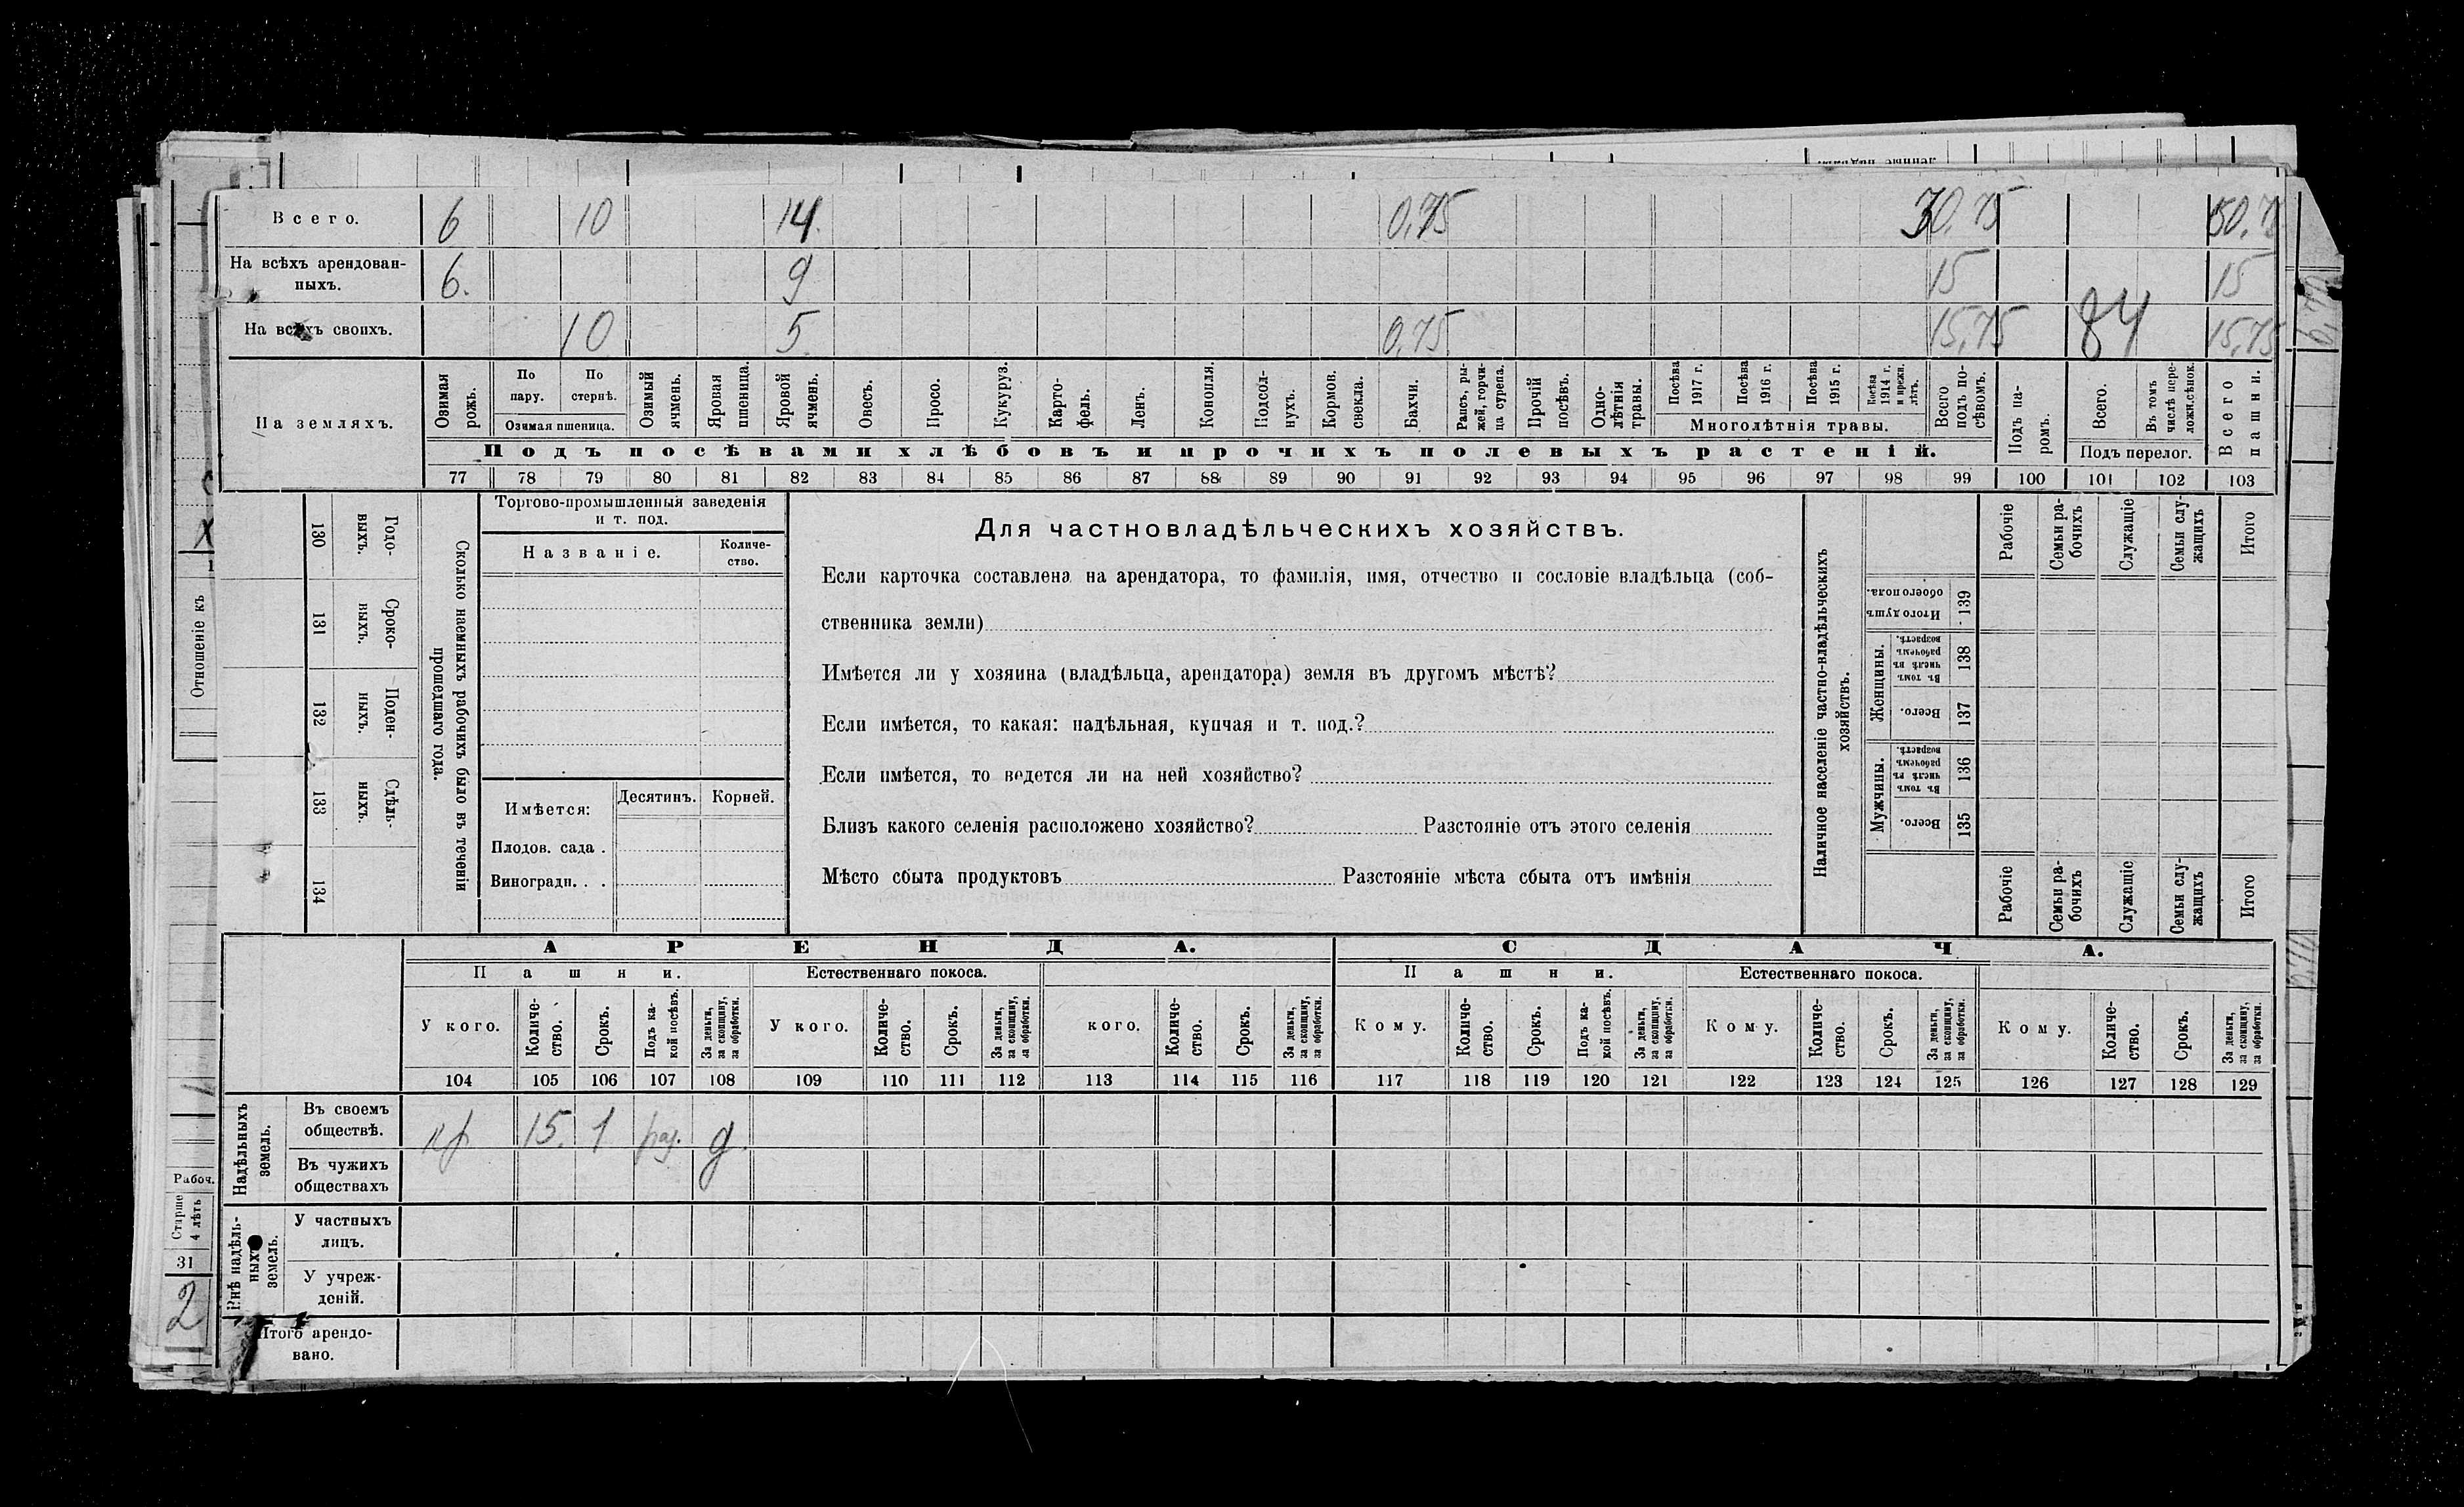 Всего. 6 10 14. 0,75 30,75 50,7
На всѣхъ арендован-
ныхъ. 6. 9 15 15
На всѣхъ своихъ. 10 5 0,75 15,75 84 15,75
На земляхъ.
Озимая рожь.
По пару.
По стернѣ.
Озимая пшеница.
Озимый ячмень.
Яровая пшеница.
Яровой ячмень.
Овесъ.
Просо.
Кукуруз.
Карто-
фель.
Ленъ.
Конопля.
Подсол-
нухъ.
Кормов. свекла.
Бахчи.
Рапсъ, ры-
жей, горчи-
ца сурепа.
Прочій посѣвъ.
Одно-
лѣтнія травы.
Посѣва 1917 г.
Посѣва 1916 г.
Посѣва 1915 г.
Посѣва 1914 г. и прежн. лѣтъ.
Многолѣтнія травы.
Всего подъ по-
сѣвомъ.
Подъ па-
ромъ.
Всего.
Въ томъ числѣ пере-
ложн.сѣнок.
Подъ перелог.
Всего пашни.
Подъ посѣвами хлѣбовъ и прочихъ полевыхъ растеній.
77 78 79 80 81 82 83 84 85 86 87 88 89 90 91 92 93 94 95 96 97 98 99 100 101 102 103
Отношеніе къ
130 Годо-
выхъ.
131 Сроко-
ныхъ.
132 Поден-
ныхъ.
133 Сдѣль-
ныхъ.
134
Сколько наемныхъ рабочихъ было въ теченіи
прошедшаго года.
Торгово-промышленныя заведенія
и т. под.
Названіе.
Количе-
ство.
Имѣется:
Десятинъ. Корней.
Плодов. сада .
Виноградн. . .
Для частновладѣльческихъ хозяйствъ.
Если карточка составлена на арендатора, то фамилія, имя, отчество и сословіе владѣльца (соб-
ственника земли)
Имѣется ли у хозяина (владѣльца, арендатора) земля въ другомъ мѣстѣ?
Если имѣется, то какая: надѣльная, купчая и т. под.?
Если имѣется, то ведется ли на ней хозяйство?
Близъ какого селенія расположено хозяйство? Разстояніе отъ этого селенія
Мѣсто сбыта продуктовъ Разстояніе мѣста сбыта отъ имѣнія
Наличное населеніе частно-владѣльческихъ
хозяйствъ.
Рабочіе
Семьи ра-
бочихъ
Служащіе
Семьи слу-
жащихъ
Итого
Итого душъ обоего пола. 139
Женщины.
Въ томъ числѣ въ рабочемъ возрастѣ. 138
Всего. 137
Мужчины.
Въ томъ числѣ въ рабочемъ возрастѣ. 136
Всего. 135
Рабочіе
Семьи ра-
бочихъ
Служащіе
Семьи слу-
жащихъ
Итого
АРЕНДА. СДАЧА.
Пашни. Естественнаго покоса. Пашни. Естественнаго покоса.
У кого.
Количе-
ство.
Срокъ.
Подъ ка-
кой посѣвъ.
За деньги,
за скопщину,
за обработки.
У кого.
Количе-
ство.
Срокъ.
За деньги,
за скопщину,
за обработки.
кого.
Количе-
ство.
Срокъ.
За деньги,
за скопщину,
за обработки.
Кому.
Количе-
ство.
Срокъ.
Подъ ка-
кой посѣвъ.
За деньги,
за скопщину,
за обработки.
Кому.
Количе-
ство.
Срокъ.
За деньги,
за скопщину,
за обработки.
Кому.
Количе-
ство.
Срокъ.
За деньги,
за скопщину,
за обработки.
104 105 106 107 108 109 110 111 112 113 114 115 116 117 118 119 120 121 122 123 124 125 126 127 128 129
Надѣльныхъ
земель.
Въ своемъ
обществѣ. кр 15. 1 раз. д
Въ чужихъ
обществахъ
Внѣ надѣль-
ныхъ
земель.
У частныхъ
лицъ.
У учреж-
деній.
Итого арендо-
вано.
Рабоч.
Старше
4 лѣтъ
31
2